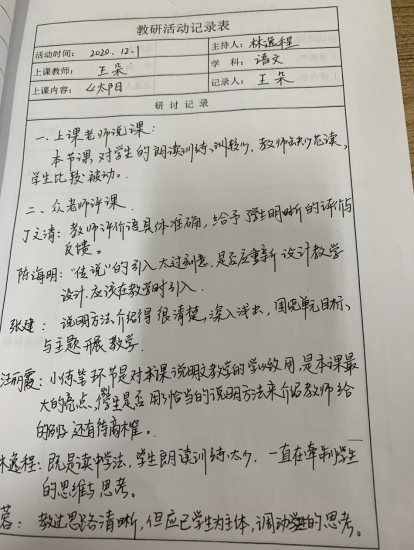 教研活动记录表
活动时间： 2020.12.1 主持人：林逸程
上课教师： 王朵 学 科：语文
上课内容：《太阳》 记录人：王朵
研 讨 记 录
一、上课老师说课：
本节课，对学生的朗读训练训较少，教师缺少范读，
学生比较被动。
二、众老师评课
丁文清：教师评价语具体准确，给予学生明晰的评价与
反馈。
陈海明："传说"的引入太过刻意，是否应重新设计教学
设计，应该在教学时引入．
张建： 说明方法介绍得很清楚，深入浅出，围绕单元目标、
与主题开展教学．
汪丽霞：小练笔环节是对本课说明文教学的学以致用，是本课最
大的亮点，但学生是否用了恰当的说明方法来介绍教师给
的例子还有待商榷。
林逸程：既是读中学法，学生朗读训练太少，一直在牵制学生
的思维与思考。
蓉： 教过思路清晰，但应已学生为主体，调动学生的思考。